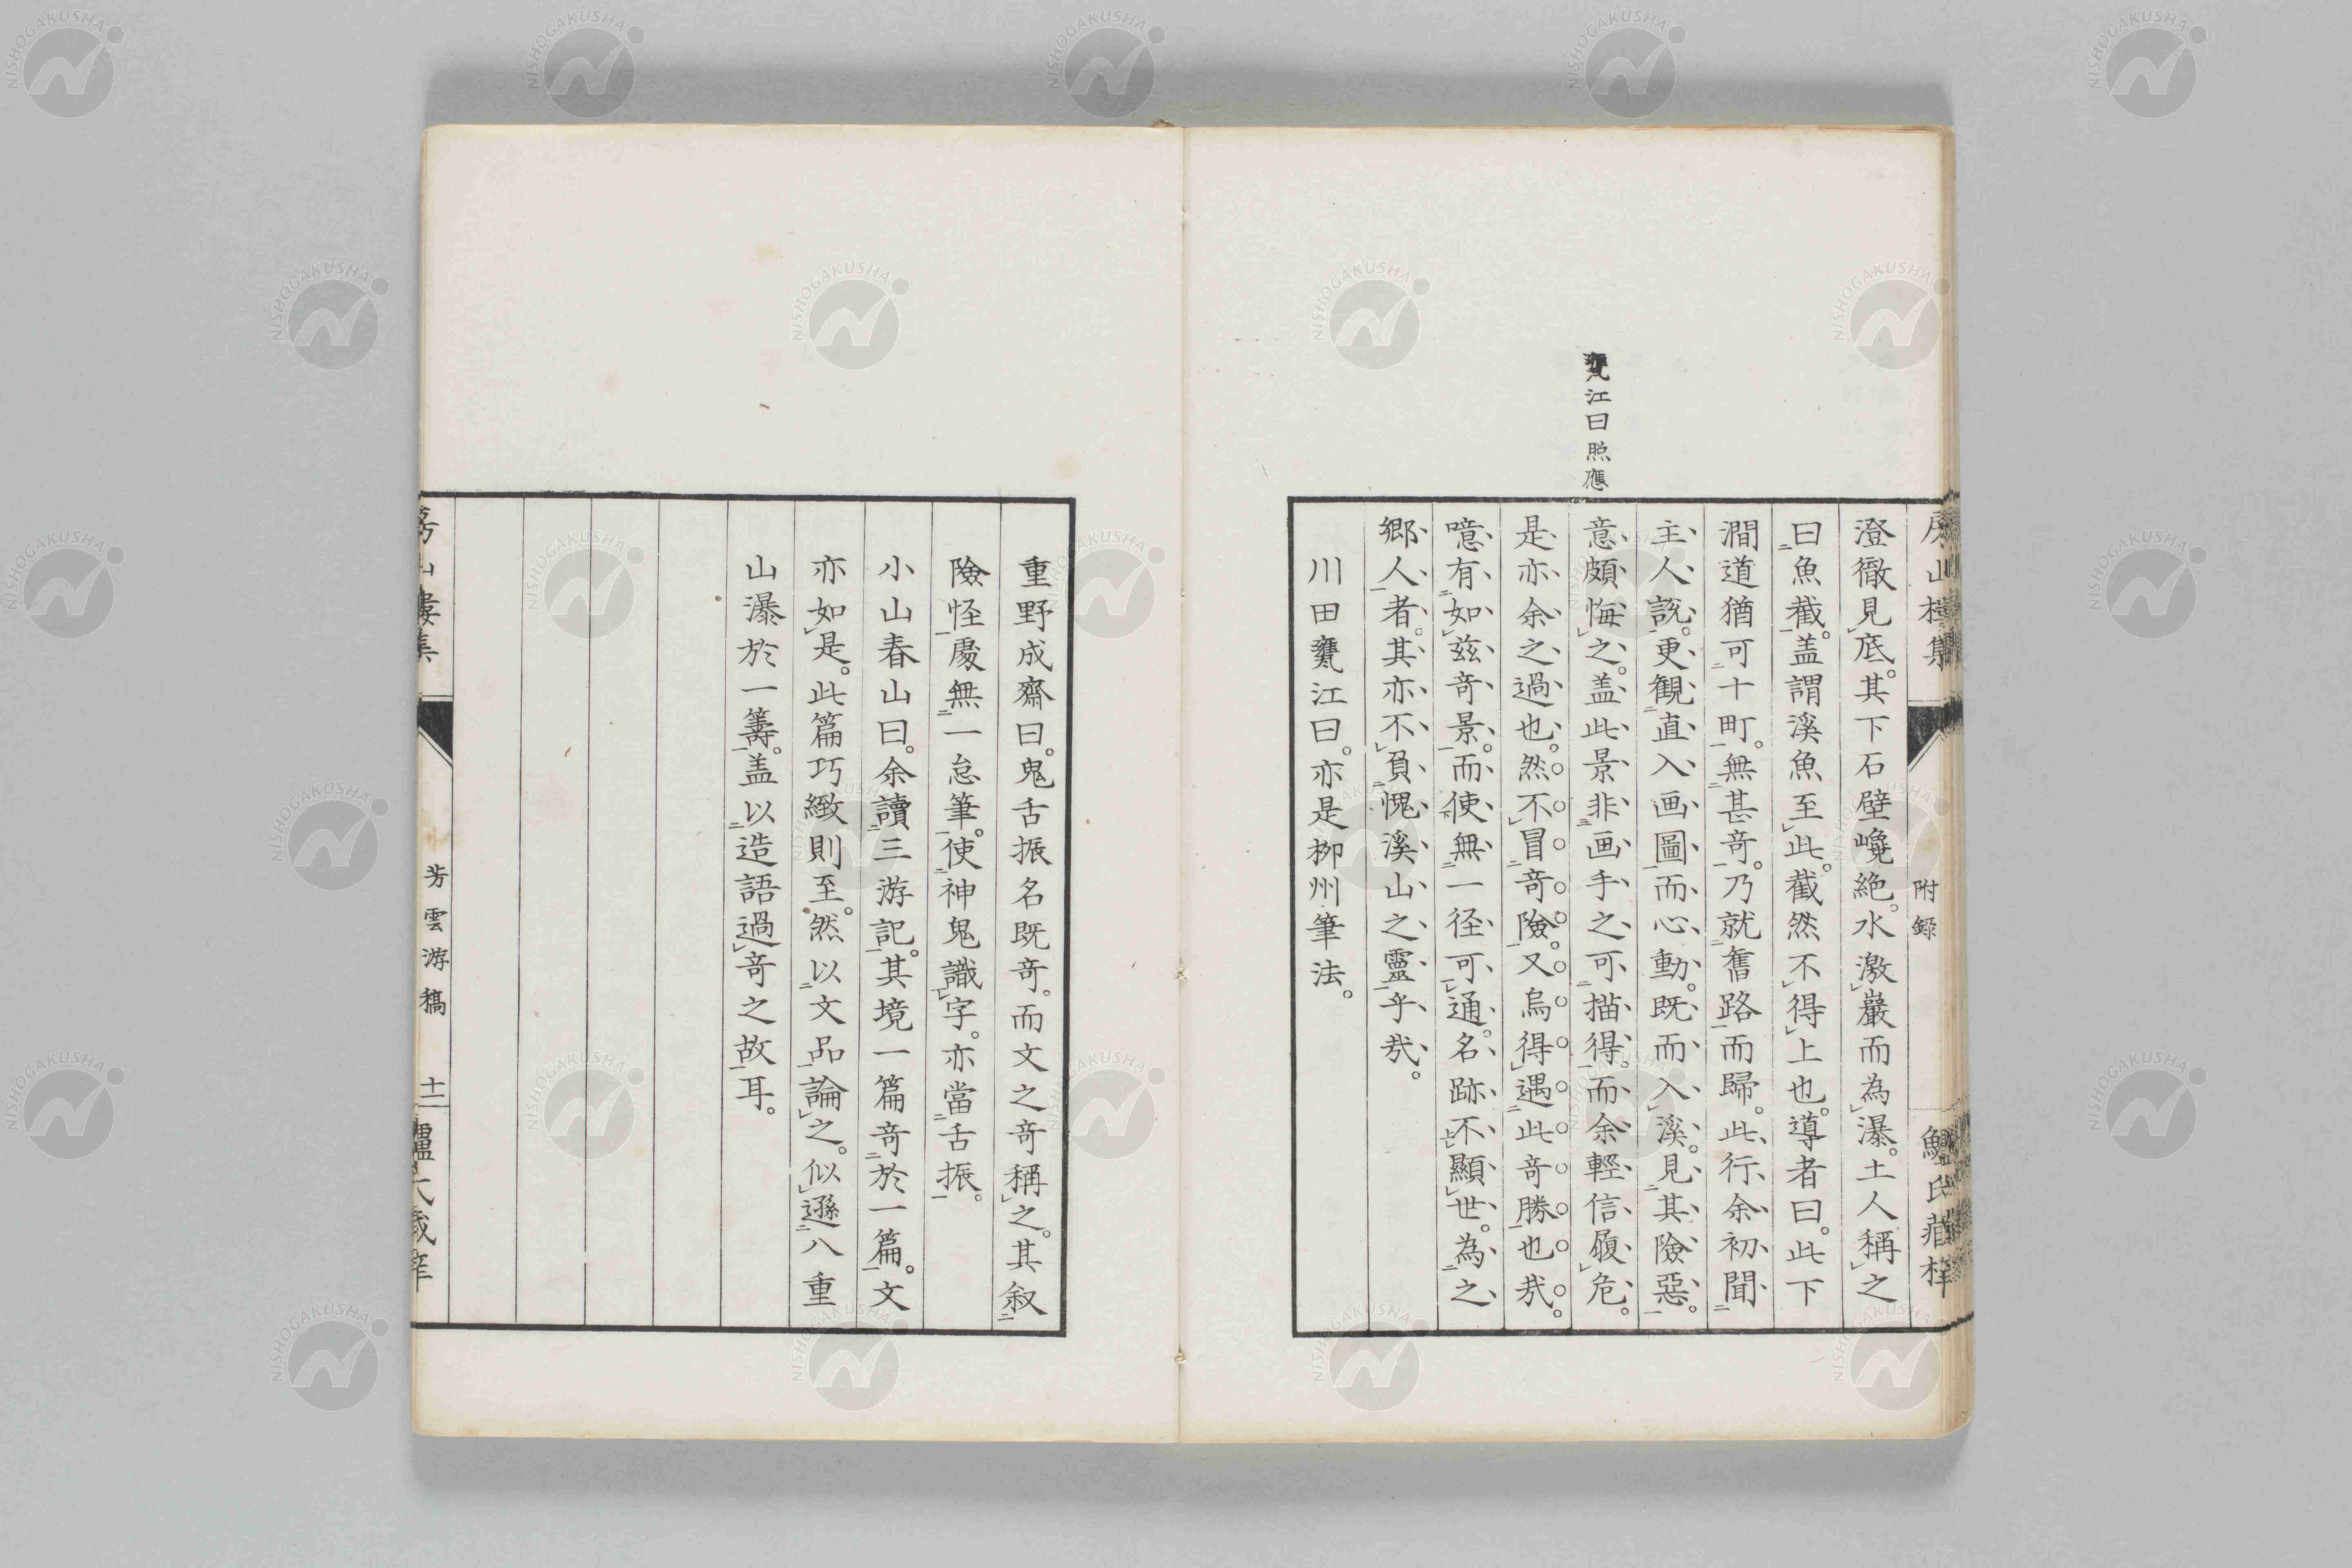 附録
甕江曰照應
澄徹見底。其下石壁巉絶。水激巖而為瀑。土人稱之
曰魚截。盖謂溪魚至此。截然不得上也。導者曰。此下
澗道猶可十町。無甚竒。乃就舊路而歸。此行余初聞
主人說。更観直入画圖而心動。既而入溪。見其險惡。
意頗悔之。盖此景非画手之可描得。而余輕信履危。
是亦余之過也。然不冒竒險。又烏得遇此竒勝也㢤。
噫有如兹竒景。而使無一径可通。名跡不顯世。為之
郷人者。其亦不負愧溪山之靈乎㢤。
川田甕江曰。亦是柳州筆法。
重野成齋曰。鬼舌振名既竒。而文之竒稱之。其叙
險怪處無一怠筆。使神鬼識字。亦當舌振。
小山春山曰。余讀三游記。其境一篇竒於一篇。文
亦如是。此篇巧緻則至。然以文品論之。似遜八重
山瀑於一籌。盖以造語過竒之故耳。
芳雲游稿
十二
NISHOGAKUSHA